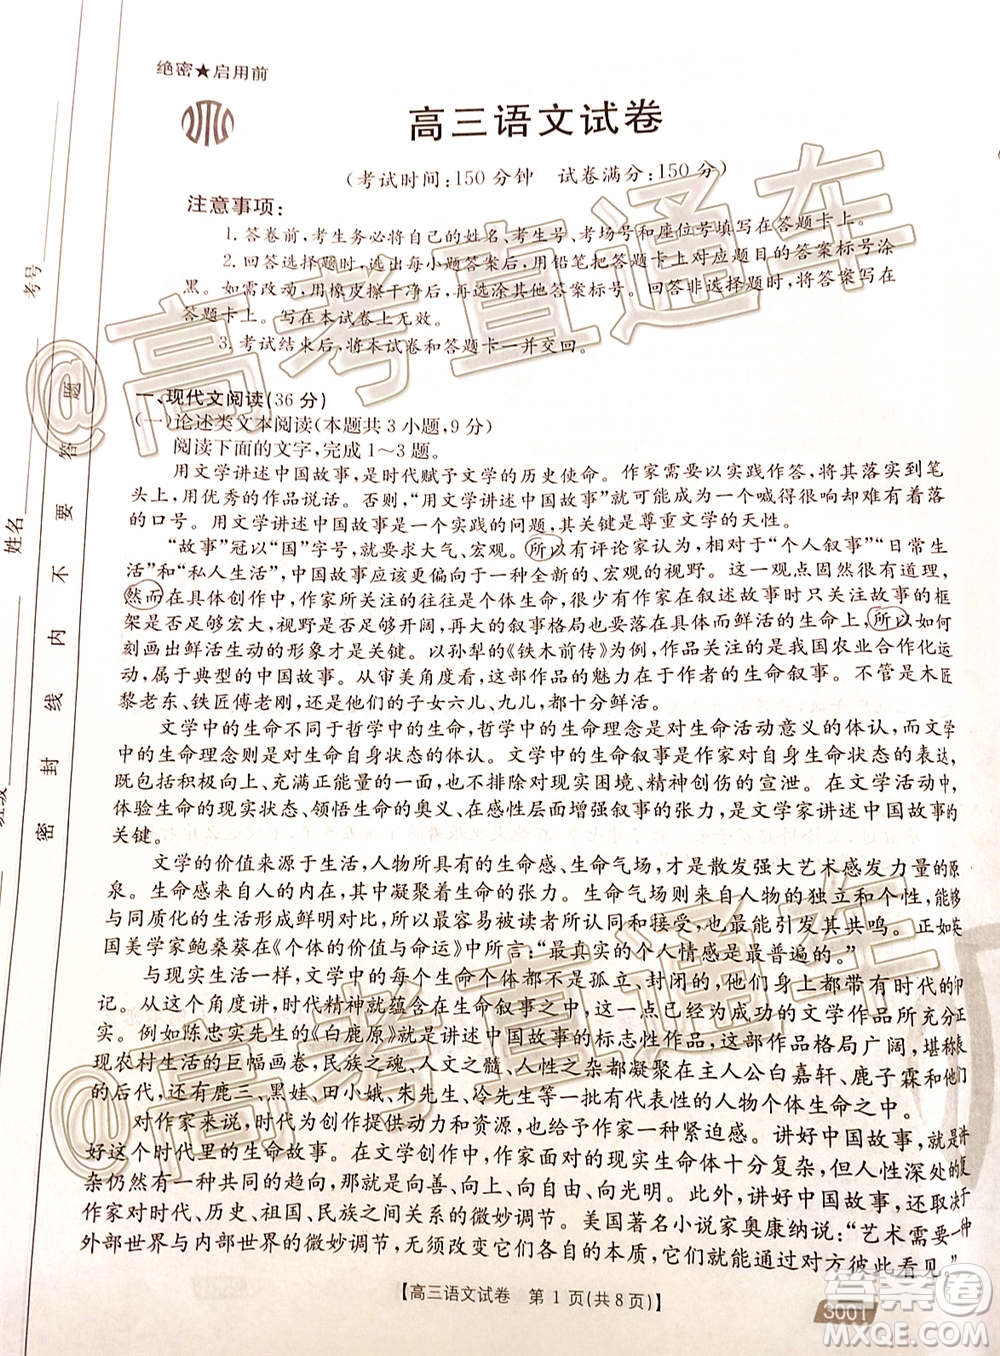 绝密★启用前
高三语文试卷
(考试时间:150分钟　试卷满分:150分)
注意事项:
1.答卷前,考生务必将自己的姓名、考生号、考场号和座位号填写在答题卡上。
2.回答选择题时,选出每小题答案后,用铅笔把答题卡上对应题目的答案标号涂
黑。如需改动,用橡皮擦干净后,再选涂其他答案标号。回答非选择题时,将答案写在
答题卡上。写在本试卷上无效。
3.考试结束后,将本试卷和答题卡一并交回。
一、现代文阅读(36分)
(一)论述类文本阅读(本题共3小题,9分)
阅读下面的文字,完成1～3题。
用文学讲述中国故事,是时代赋予文学的历史使命。作家需要以实践作答,将压力落实到笔
头上,用优秀的作品说话。否则,“用文学讲述中国故事”将会成为一个喊得很响但却难有着落
的口号。用文学讲述中国故事是一个实践的问题,其关键是尊重文学的天性。
“故事”冠以“国”字号,就要求大气、宏观。所以有评论家认为,相对于“个人叙事”“日常生
活”和“私人生活”,中国故事应该更偏向于一种整全的、宏观的视野。这一观点固然很有启发,
然而在具体创作中,作家所关注的往往是个体生命,很少有作家会去刻意关注故事的框
架是否足够宏大,视野是否足够开阔,再大的叙事格局也要落实到具体而鲜活的生命上,所以如何
刻画出鲜活生动的形象才是关键。以孙犁的《铁木前传》为例,作品关注的是我国农业合作化运
动,属于典型的中国故事。从审美角度看,作品的魅力在于作者的生命意识。不管是木匠
黎老东、铁匠傅老刚,还是他们的子女六儿、九儿,都十分鲜活。
文学中的生命不同于哲学中的生命,哲学中的生命理念是对生命活动意义的体认,而文学
中的生命理念则是对生命自身状态的体认。文学中的生命叙事是作家对自身生命状态的表达,
既包括积极向上、充满正能量的一面,也不排除对现实困境、精神创伤的宣泄。在文学活动中,
体验生命的现实状态、领悟生命的奥义、在感性层面增强叙事的张力,是文学家讲述中国故事的
关键。
文学的价值来源于生活,人物所具有的生命感、生命气场,才是散发强大艺术感发力量的原
泉。生命感来自人的内在,其中凝聚着生命的张力。生命气场则来自人物的独立和个性,能够
与同质化的生活形成鲜明对比,最容易被读者所认同和接受,也最能引发其共鸣。正如英
国美学家鲍桑葵在《个体的价值与命运》中所言:“最真实的个人情感是最普遍的。”
与现实生活一样,文学中的每个生命个体都不是孤立、封闭的,他们身上都带有时代的印
记。从这个角度讲,时代精神就蕴含在生命叙事之中,这一点已经为成功的文学作品所充分证
实。例如陈忠实先生的《白鹿原》就是讲述中国故事的标志性作品,这部作品格局广阔,堪称表
现农村生活的巨幅画卷,民族之魂、人文之髓、人性之杂都凝聚在主人公白嘉轩、鹿子霖和他们
的后代,还有鹿三、黑娃、田小娥、朱先生、冷先生等一批有代表性的人物个体生命之中。
对作家来说,时代为创作提供动力和资源,也给予作家一种紧迫感。讲好中国故事,就是讲
好这个时代里的生命故事。在文学创作中,作家面对的生命体十分复杂,但人性深处的复
杂仍然有一种共同的趋向,那就是向善、向上、向自由、向光明。此外,讲好中国故事,还取决于
作家对时代、历史、祖国、民族之间关系的微妙调节。美国著名小说家奥康纳说:“艺术需要一种
外部世界与内部世界的微妙调节,无须改变它们各自的本质,它们就能通过对方彼此看见。”
【高三语文试卷　第1页(共8页)】
3001
考号
姓名
班级
密封线内不要答题
@高考直通车
@高考直通车
答案圈
MXQE.COM